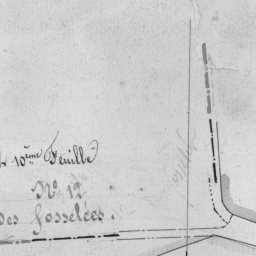 10ème Feuille
N° 12
des Fosselées.